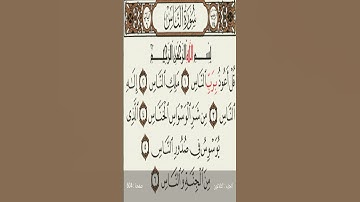 سُورَةُ النَّاسِ
بِسْمِ اللَّهِ الرَّحْمَٰنِ الرَّحِيمِ
قُلْ أَعُوذُ بِرَبِّ النَّاسِ ١ مَلِكِ النَّاسِ ٢ إِلَٰهِ
النَّاسِ ٣ مِن شَرِّ الْوَسْوَاسِ الْخَنَّاسِ ٤ الَّذِي
يُوَسْوِسُ فِي صُدُورِ النَّاسِ ٥
مِنَ الْجِنَّةِ وَالنَّاسِ ٦
الجزء الثلاثون صفحة 604